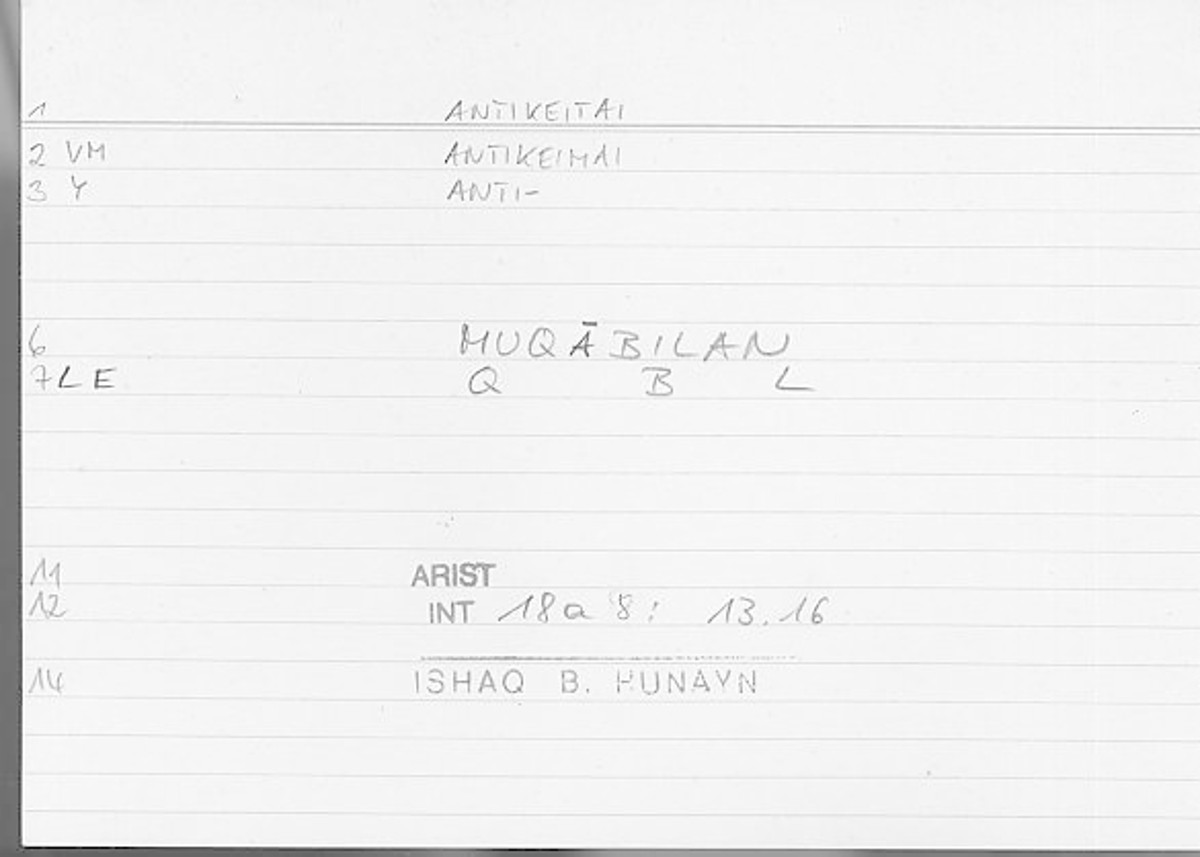 1 ANTIKEITAI
2 VM ANTIKEIMAI
3 Y ANTI-
6 MUQĀBILAN
7 L E Q B L
11 ARIST
12 INT 18a 8: 13.16
14 ISHAQ B. HUNAYN